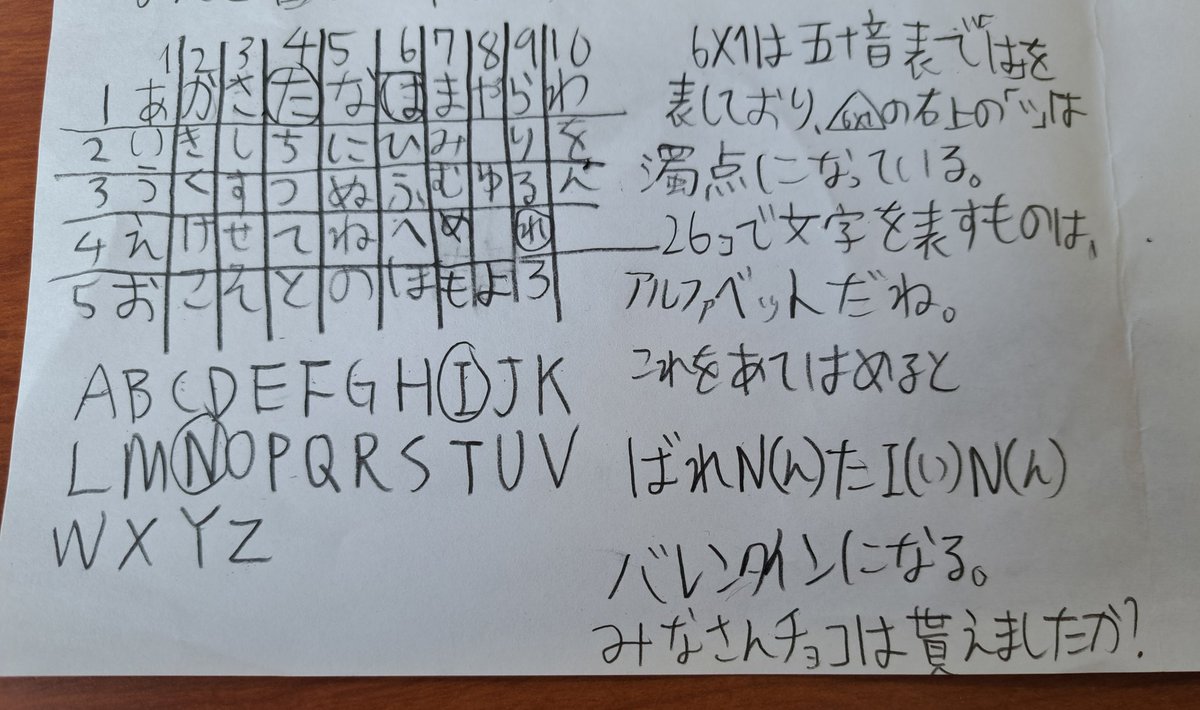 1 2 3 4 5 6 7 8 9 10
1 あ か さ た な は ま や ら わ
2 い き し ち に ひ み り を
3 う く す つ ぬ ふ む ゆ る ん
4 え け せ て ね へ め れ
5 お こ そ と の ほ も よ ろ
A B C D E F G H I J K
L M N O P Q R S T U V
W X Y Z
6×1は五十音表で「は」を
表しており、6×1の右上の「〃」は
濁点になっている。
26コで文字を表すものは、
アルファベットだね。
これをあてはめると
ばれN(ん)たI(い)N(ん)
バレンタインになる。
みなさんチョコは貰えましたか?